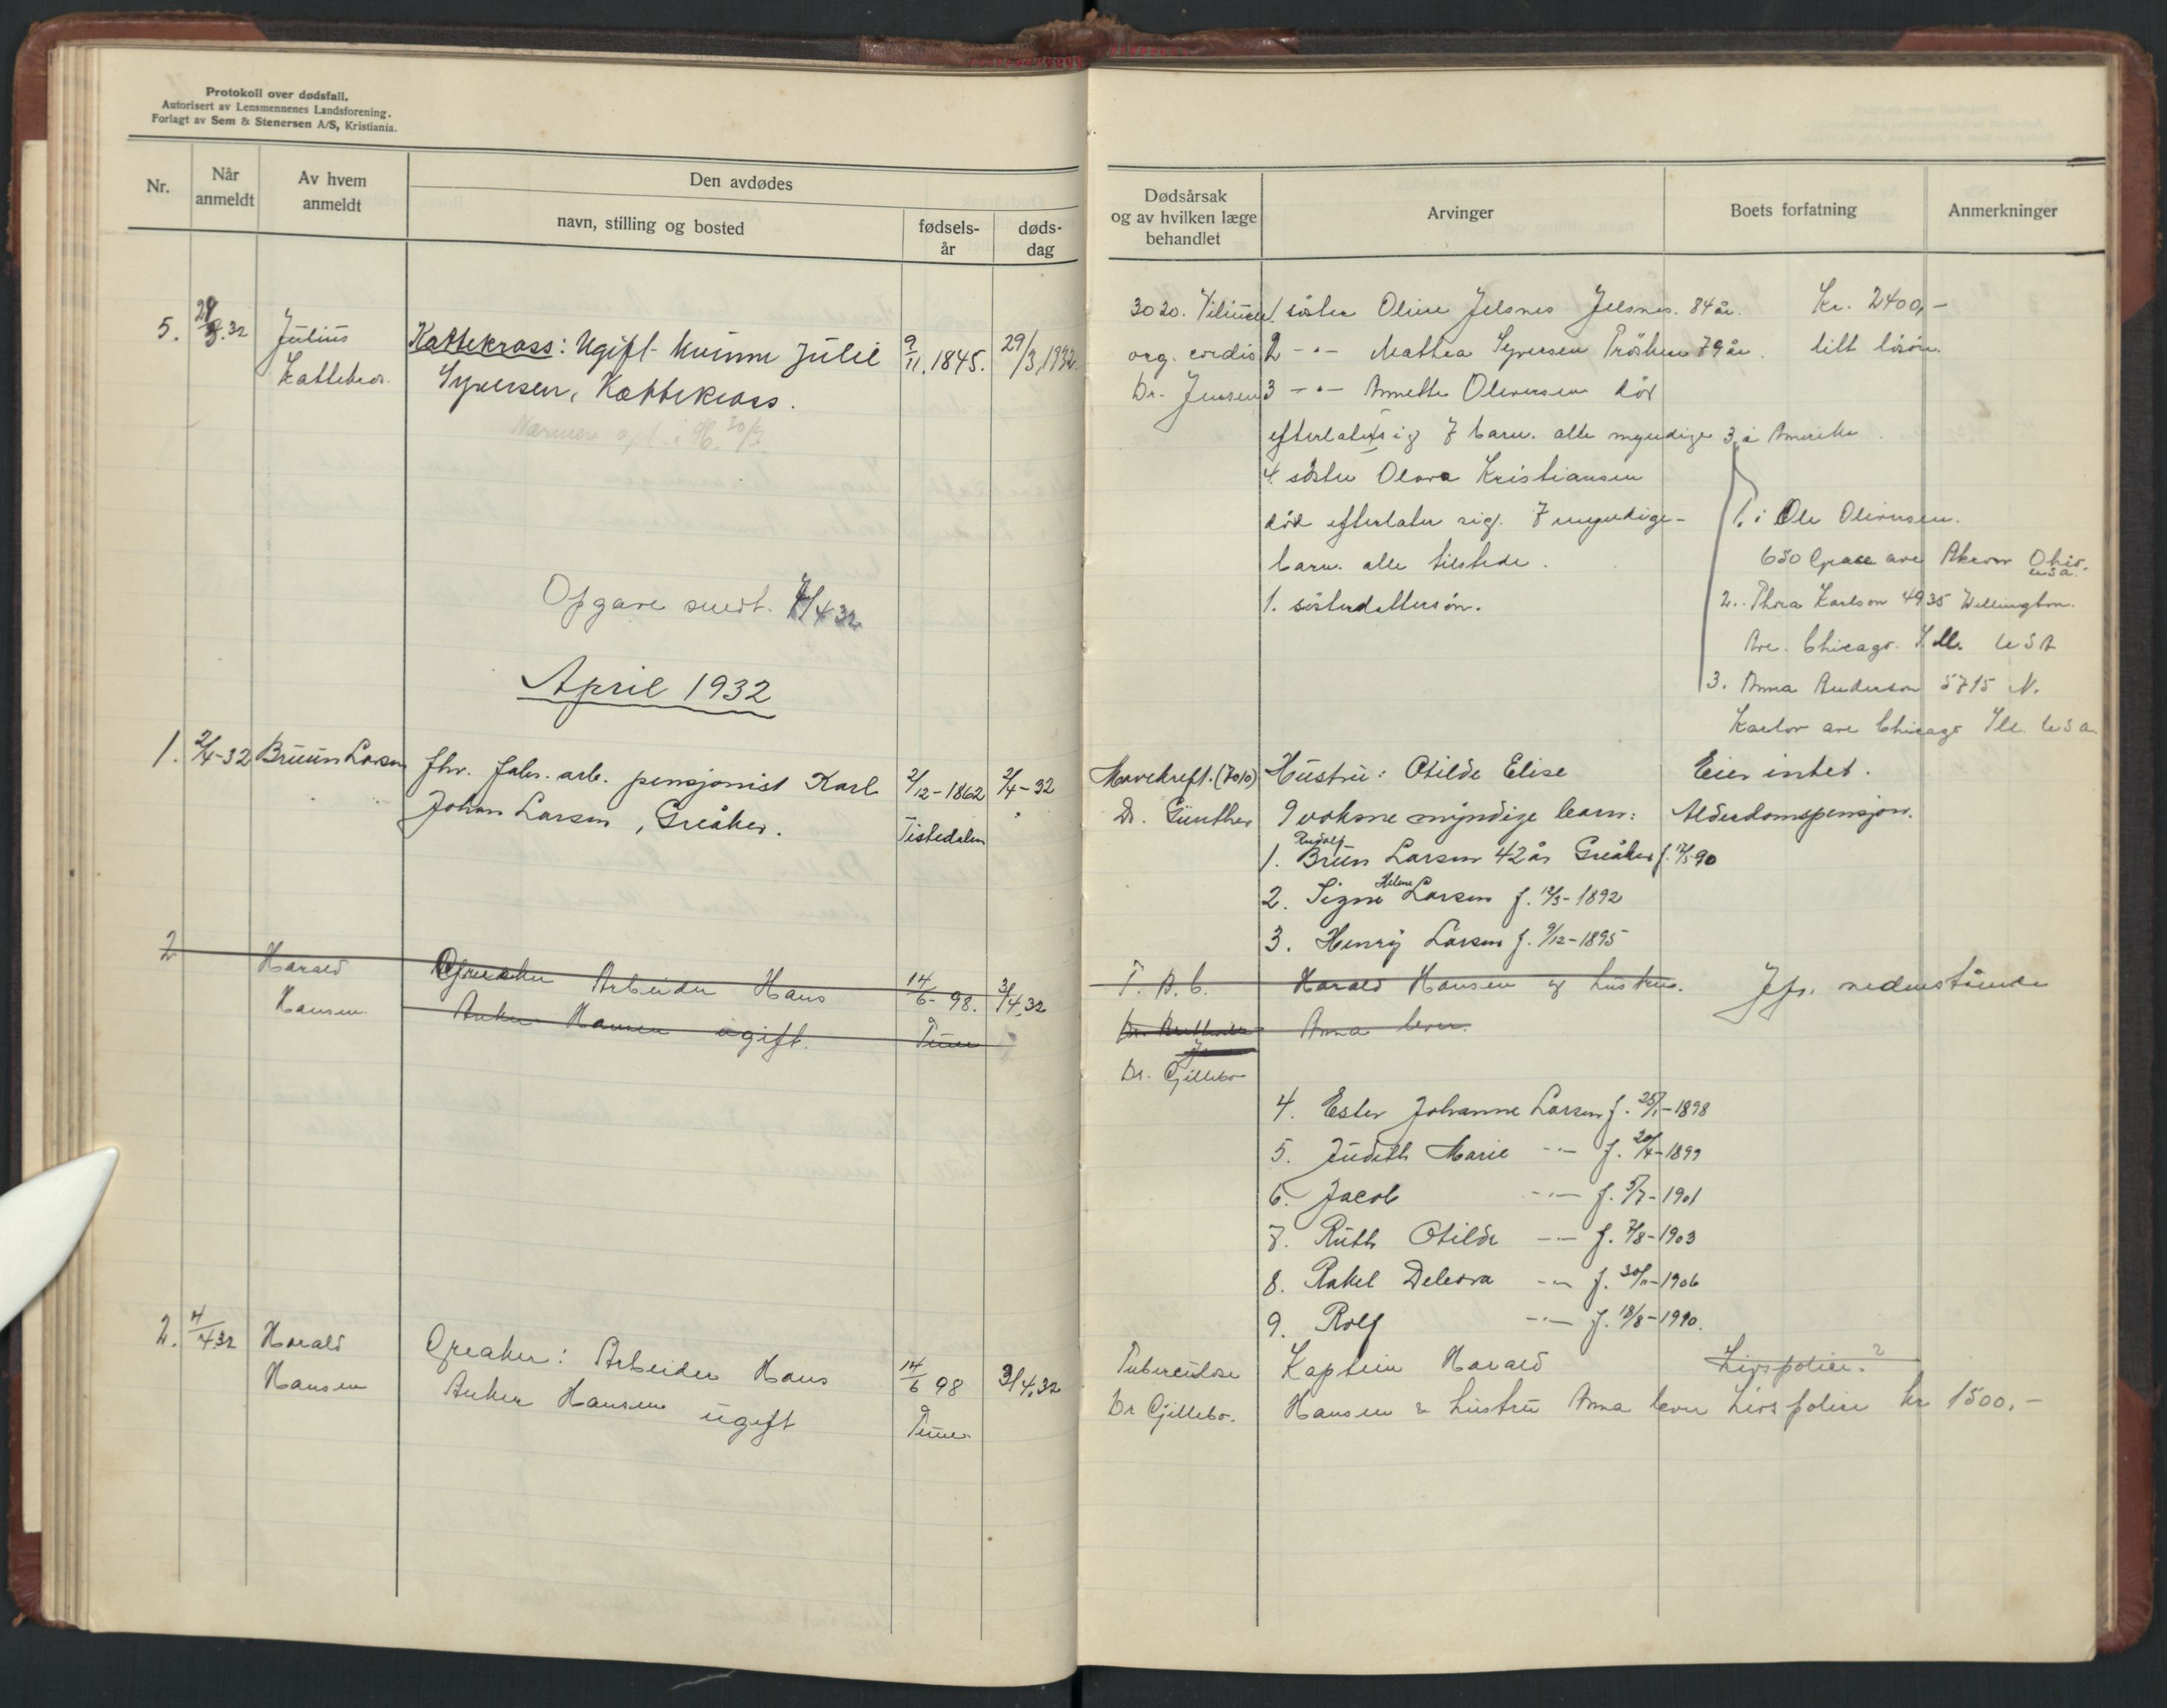 Protokoll over dødsfall.
Autorisert av Lensmennenes Landsforening.
Forlagt av Sem & Stenersen A/S, Kristiania.
Nr.
Når anmeldt
Av hvem anmeldt
Den avdødes
navn, stilling og bosted
fødsels-år
døds-dag
5. 29/3.32 Julius Kattekross: Ugift kvinne Julie 9/11.1845. 29/3.1932.
Syversen, Kattekross.
Opgave sendt 4/4 32
April 1932
1. 2/4-32 Bruun Larsen fhv. fabr. arb. pensjonist Karl 2/12-1862 2/4-32
Johan Larsen, Greåker. Tistedalen
2 Harald Greaker Arbeider Hans 14/6-98. 3/4.32
Hansen Anker Hansen ugift. Tune
2. 4/4 32 Harald Greaker: Arbeider Hans 14/6 98 3/4.32
Hansen Anker Hansen ugift Tune
Dødsårsak
og av hvilken læge
behandlet
Arvinger
Boets forfatning
Anmerkninger
3020. Vitium 1 søster Oline Jelsnes Jelsnes. 84 år. Kr. 2400,-
org. cordis 2 -"- Mathea Syversen 79 år. litt løsøre.
Dr. Jensen 3 -"- Annette Oliversen død
efterlater sig 7 barn. alle myndige 3 i Amerika.
4. søster Olava Kristiansen
død efterlater sig. 7 myndige-
barn. alle tilstede.
1. søsterdattersøn.
1. Ole Oliversen.
650 Grace ave Akron Ohio.
usa.
2. Thora Karlson 4935 Wellington.
Ave. Chicago. Ill. USA
3. Anna Anderson 5715 N.
ave Chicago Ill. usa
Mavekreft. (7010) Hustru: Otilde Elise Eier intet.
Dr. Günther 9 voksne myndige barn: Alderdomspensjon.
Rudolf
1. Bruun Larsen 42 år Greåker f. /5-90
Helene
2. Signe Larsen f. 12/3-1892
3. Henry Larsen f. 9/12-1895
T. B. C. Harald Hansen og hustru. Jfr. nedenstående
Anna lever.
Dr. Gjillebo
4. Ester Johanne Larsen f. 25/1-1898
5. Judith Marie -"- f. 20/4-1899
6. Jacob -"- f. 5/7-1901
7. Ruth Otilde -"- f. 7/8-1903
8. Rakel Debora -"- f. 30/11-1906
9. Rolf -"- f. 18/8-1990.
Tuberculose Kaptein Harald Livspolice.?
Dr Gjillebo. Hansen & hustru Anna lever Livspolice kr 1500.-